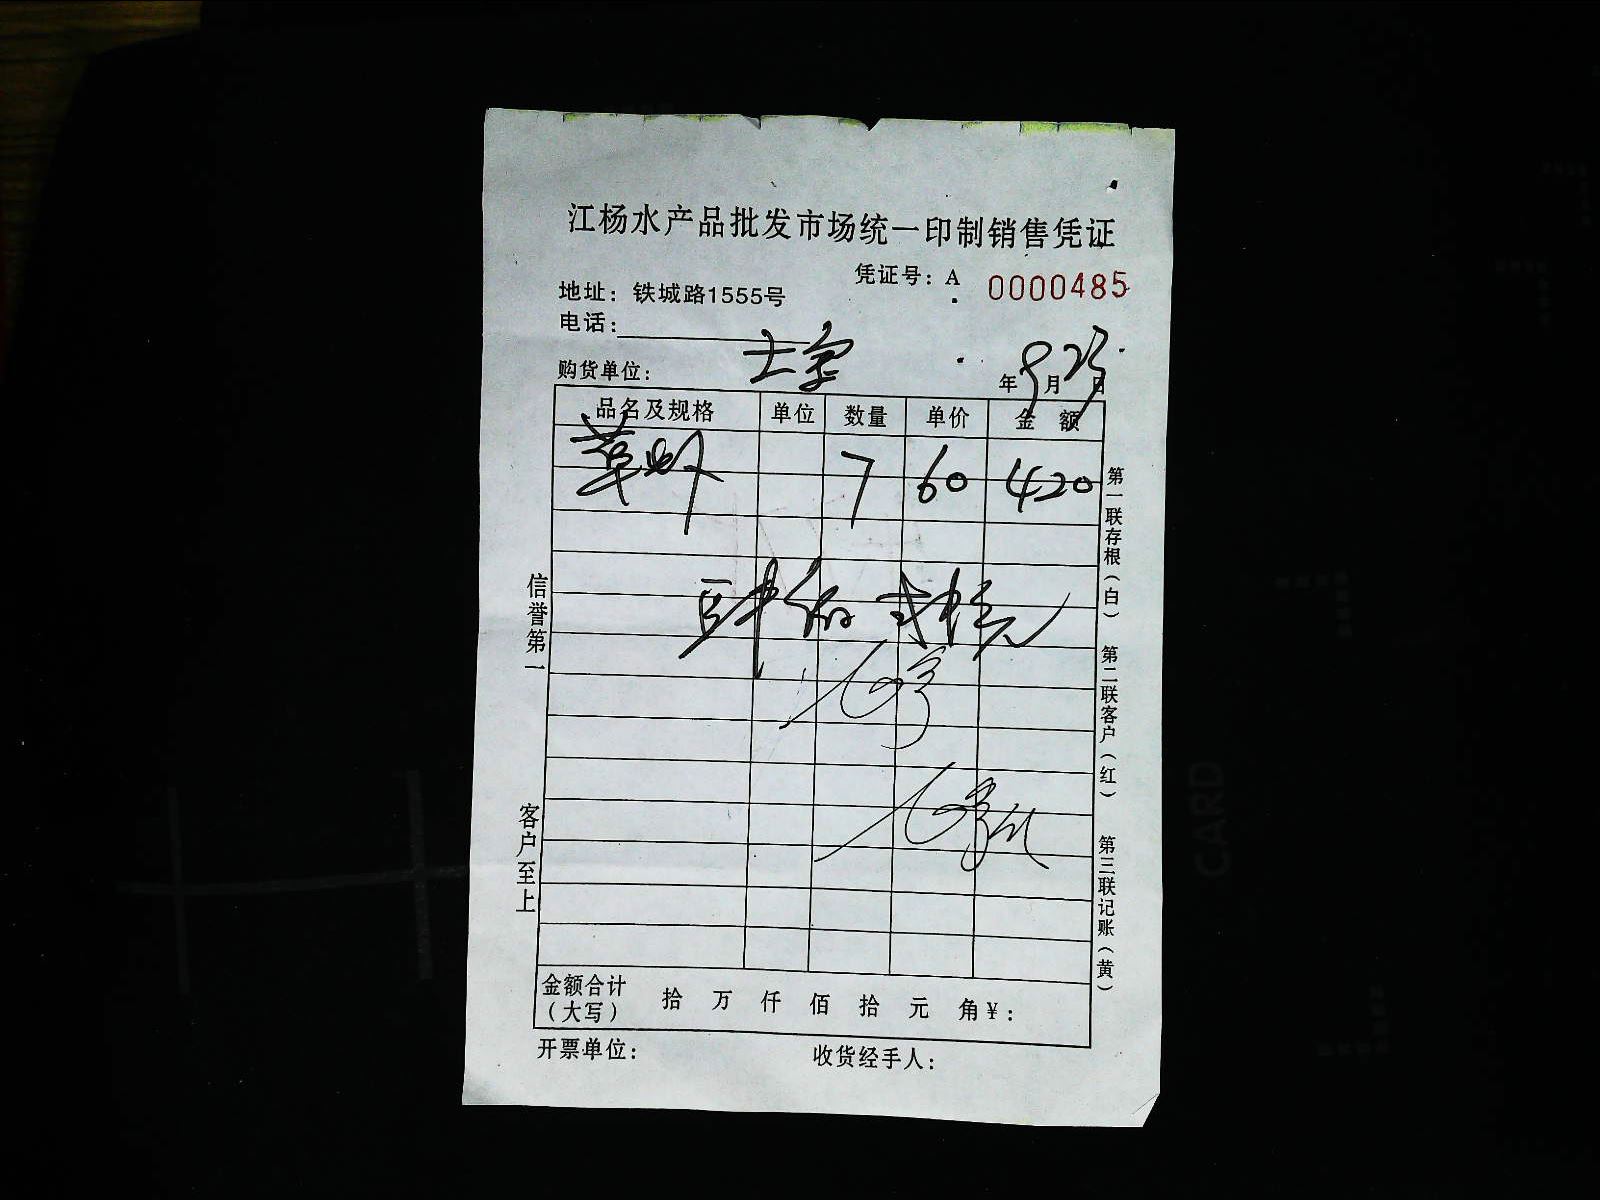 江杨水产品批发市场统一印制销售凭证
凭证号：A 0000485
地址：铁城路1555号
电话：
购货单位： 年9月23日
品名及规格 单位 数量 单价 金额
草虾 7 60 420
肆佰弍拾元
金额合计（大写） 拾 万 仟 佰 拾 元 角 ¥：
开票单位： 收货经手人：
信誉第一 客户至上
第一联存根（白） 第二联客户（红） 第三联记账（黄）
CARD